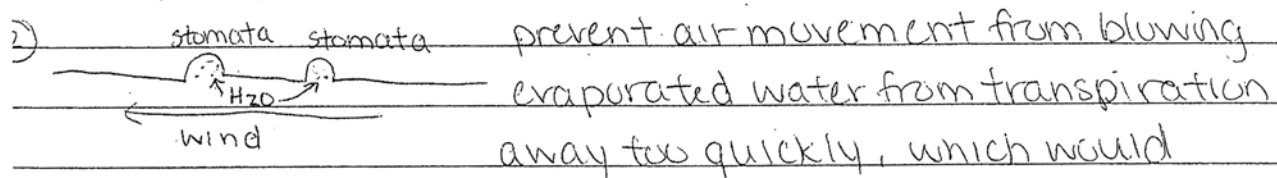 2)
stomata stomata
H2O
wind
prevent air movement from blowing
evaporated water from transpiration
away too quickly, which would